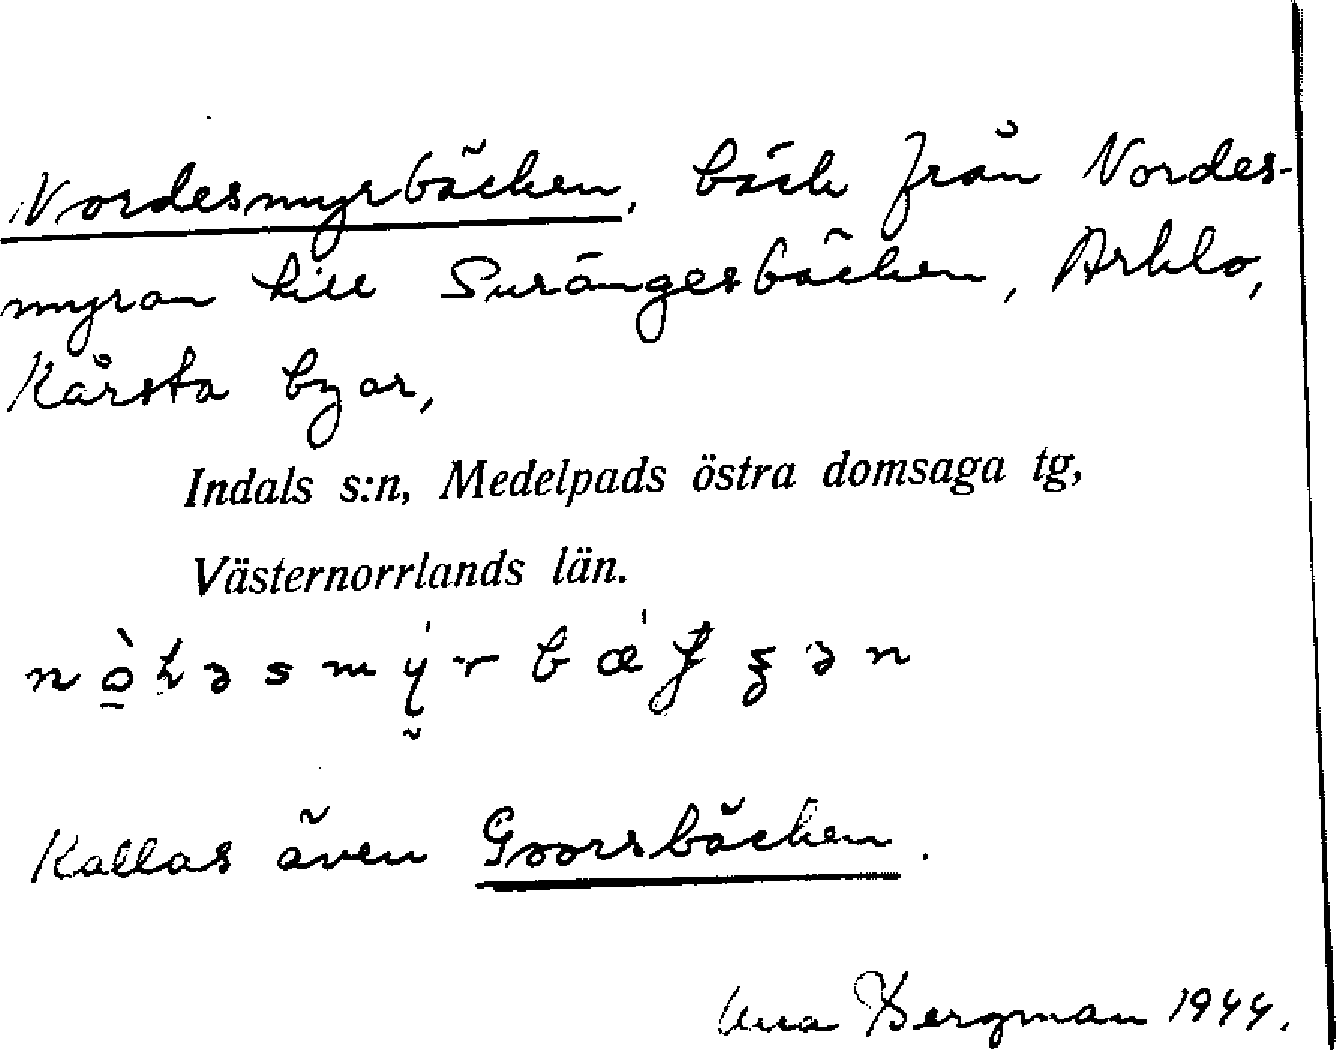 Nordesmyrbäcken, bäck från Nordes-
myran till Surängesbäcken, Arklo,
Kårsta byar,
Indals s:n, Medelpads östra domsaga tg,
Västernorrlands län.
Kallas även Goorsbäcken.
Bergman 1944.